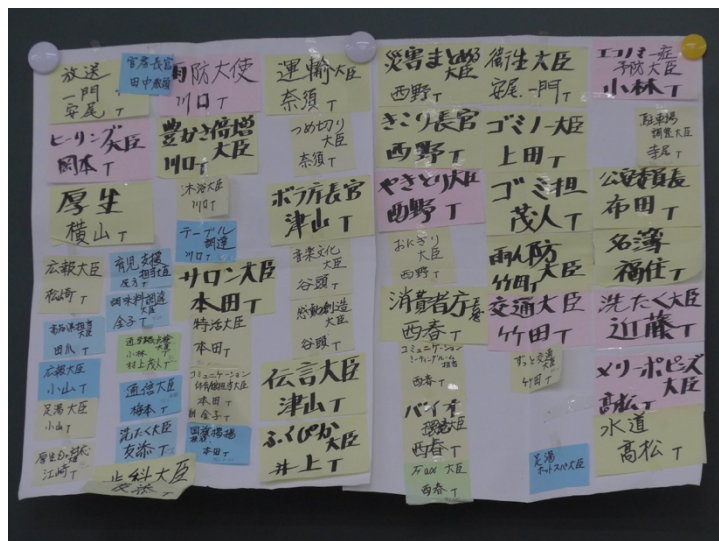 放送
一門
安尾 T
官房長官
ヒーリング大臣
岡本 T
厚生
横山 T
広報大臣
松崎 T
広報大臣
小山 T
足湯大臣
小山 T
江崎 T
育児支援
調味料調達
大臣
金子 T
小林 T
村上茂人 T
通信大臣
梅本 T
洗たく大臣
歯科大臣
防大使
川口 T
豊かさ倍増
大臣
川口 T
沐浴大臣
川口 T
テーブル
調達
川口 T
サロン大臣
本田 T
特活大臣
本田 T
コミュニケーション
本田 T
金子 T
本田 T
運輸大臣
奈須 T
つめ切り
大臣
奈須 T
ボラ庁長官
津山 T
音楽文化
大臣
谷頭 T
感動創造
大臣
谷頭 T
伝言大臣
津山 T
ふくぴか大臣
井上 T
災害まとめる
大臣
西野 T
きこり長官
西野 T
やきとり大臣
西野 T
おにぎり
大臣
西野 T
消費者庁長官
西春 T
コミュニケーション
西春 T
バイオ
環境大臣
西春 T
大臣
西春 T
衛生大臣
安尾.一門 T
ゴミノー大臣
上田 T
ゴミ担
茂人 T
雨ん防
大臣
竹田 T
交通大臣
竹田 T
ずっと交通
大臣
竹田 T
足湯
ホットスパ大臣
エコノミー症
予防大臣
小林 T
駐車場
調整大臣
寺尾 T
公安委員長
布田 T
名簿
福住 T
洗たく大臣
近藤 T
メリーポピンズ
大臣
高松 T
水道
高松 T